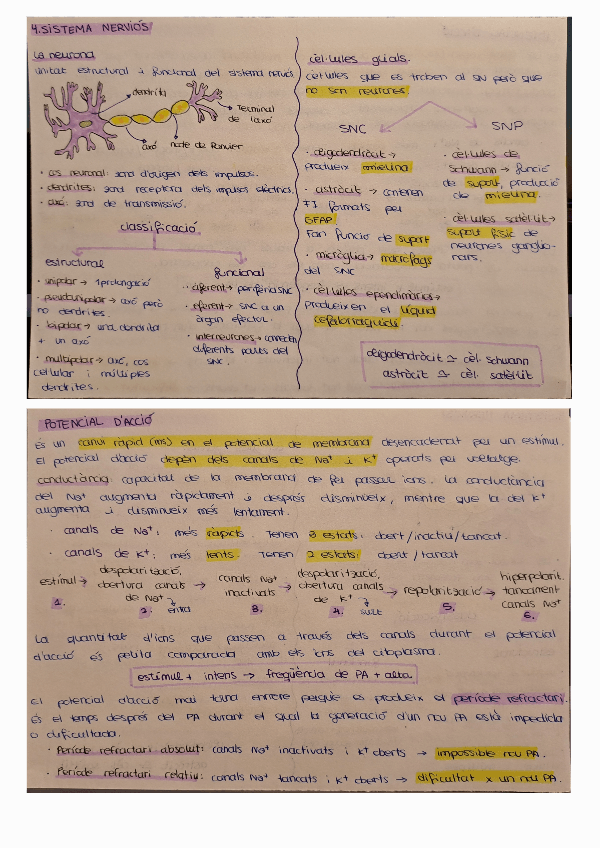 4. SISTEMA NERVIÓS
La neurona
unitat estructural i funcional del sistema nerviós
dendrita
Terminal
de l'axó
axó
node de Ranvier
· cos neuronal: zona d'origen dels impulsos.
· dendrites: zona receptora dels impulsos elèctrics.
· axó: zona de transmissió.
classificació
estructural
· unipolar → 1 prolongació
· pseudounipolar → axó però
no dendrites.
· bipolar → una dendrita
+ un axó
· multipolar → axó, cos
cel·lular i múltiples
dendrites.
funcional
· aferent → perifèria SNC
· eferent → SNC a un
òrgan efector.
· interneurones → connecten
diferents parts del
SNC.
cèl·lules glials.
cèl·lules que es troben al SN però que
no són neurones.
SNC
· oligodendròcit →
produeix mielina
· astròcit → contenen
FI formats per
GFAP
Fan funció de suport
· micròglia → macròfags
del SNC
· cèl·lules ependimàries →
produeixen el líquid
cefaloraquidi
SNP
· cèl·lules de
Schwann → funció
de suport, producció
de mielina.
· cèl·lules satèl·lit →
suport físic de
neurones ganglio-
nars.
oligodendròcit ≃ cèl. schwann
astròcit ≃ cèl. satèl·lit
POTENCIAL D'ACCIÓ
És un canvi ràpid (ms) en el potencial de membrana desencadenat per un estímul.
El potencial d'acció depèn dels canals de Na+ i K+ operats per voltatge.
conductància: capacitat de la membrana de fer passar ions. La conductància
del Na+ augmenta ràpidament i després disminueix, mentre que la del K+
augmenta i disminueix més lentament.
· canals de Na+: més ràpids. Tenen 3 estats: obert/inactiu/tancat.
· canals de K+: més lents. Tenen 2 estats: obert/tancat
estímul →
1.
despolarització,
obertura canals
de Na+
2. entra
→ canals Na+
inactivats
3.
despolarització,
→ obertura canals
de K+
4. surt
→ repolarització →
5.
hiperpolarit.
tancament
canals Na+
6.
La quantitat d'ions que passen a través dels canals durant el potencial
d'acció és petita comparada amb els ions del citoplasma.
estímul + intens → freqüència de PA + alta.
El potencial d'acció mai torna enrere perquè es produeix el període refractari.
És el temps després del PA durant el qual la generació d'un nou PA està impedida
o dificultada.
· Període refractari absolut: canals Na+ inactivats i K+ oberts → impossible nou PA.
· Període refractari relatiu: canals Na+ tancats i K+ oberts → dificultat x un nou PA.